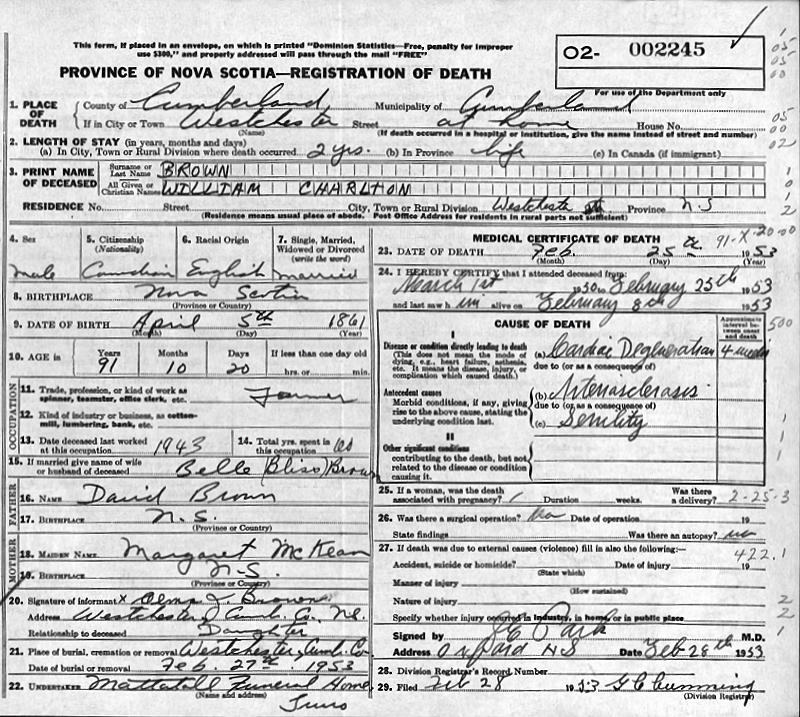 This form, if placed in an envelope, on which is printed "Dominion Statistics—Free, penalty for improper
use $300," and properly addressed will pass through the mail "FREE"
O2- 002245
For use of the Department only
PROVINCE OF NOVA SCOTIA—REGISTRATION OF DEATH
1. PLACE OF DEATH County of Cumberland Municipality of Cumberland
If in City or Town Westchester Street at home House No.
(Name) (If death occurred in a hospital or institution, give the name instead of street and number)
2. LENGTH OF STAY (in years, months and days)
(a) In City, Town or Rural Division where death occurred 2 yrs. (b) In Province life (c) In Canada (if immigrant)
3. PRINT NAME OF DECEASED Surname or Last Name BROWN
All Given or Christian Names WILLIAM CHARLTON
RESIDENCE No. Street City, Town or Rural Division Westchester Province N.S
(Residence means usual place of abode. Post Office Address for residents in rural parts not sufficient)
4. Sex Male
5. Citizenship (Nationality) Canadian
6. Racial Origin English
7. Single, Married, Widowed or Divorced (write the word) Married
8. BIRTHPLACE Nova Scotia
(Province or Country)
9. DATE OF BIRTH April 5th 1861
(Month) (Day) (Year)
10. AGE in Years 91 Months 10 Days 20 If less than one day old hrs. or min.
OCCUPATION
11. Trade, profession, or kind of work as spinner, teamster, office clerk, etc. Farmer
12. Kind of industry or business, as cotton-mill, lumbering, bank, etc.
13. Date deceased last worked at this occupation 1943
14. Total yrs. spent in this occupation 60
15. If married give name of wife or husband of deceased Belle (Bliss) Brown
FATHER
16. NAME David Brown
17. BIRTHPLACE N.S.
(Province or Country)
MOTHER
18. MAIDEN NAME Margaret McKean
19. BIRTHPLACE N.S.
(Province or Country)
20. Signature of informant x Brown
Address Westchester, Cumb. Co, N.S.
Relationship to deceased Daughter
21. Place of burial, cremation or removal Westchester, Cumb. Co.
Date of burial or removal Feb. 27th. 1953
22. UNDERTAKER Mattatall Funeral Home
(Name and address) Truro
MEDICAL CERTIFICATE OF DEATH
91-X-20-00
23. DATE OF DEATH Feb. 25th 1953
(Month) (Day) (Year)
24. I HEREBY CERTIFY that I attended deceased from:
March 1st 1950 to February 25th 1953
and last saw him alive on February 8th 1953
CAUSE OF DEATH
Approximate interval between onset and death
I
Disease or condition directly leading to death (This does not mean the mode of dying, e.g., heart failure, asthenia, etc. It means the disease, injury, or complication which caused death.)
(a) Cardiac Degeneration 4 weeks
due to (or as a consequence of)
Antecedent causes
Morbid conditions, if any, giving rise to the above cause, stating the underlying condition last.
(b) Arteriosclerosis
due to (or as a consequence of)
(c) Senility
II
Other significant conditions
contributing to the death, but not related to the disease or condition causing it.
25. If a woman, was the death associated with pregnancy? Duration weeks. Was there a delivery?
2-25-3
26. Was there a surgical operation? No Date of operation 19
State findings Was there an autopsy? no
27. If death was due to external causes (violence) fill in also the following:—
422.1
Accident, suicide or homicide? Date of injury 19
(State which)
Manner of injury
(How sustained)
Nature of injury
Specify whether injury occurred in industry, in home or in public place
Signed by Park M.D.
Address Oxford N.S Date Feb 28th 1953
28. Division Registrar's Record Number
29. Filed Feb 28 1953 G C Cumming
(Division Registrar)